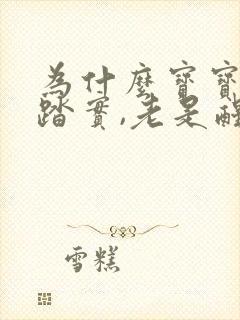 为什麽寶寶
踏實,老是醒
雪糕